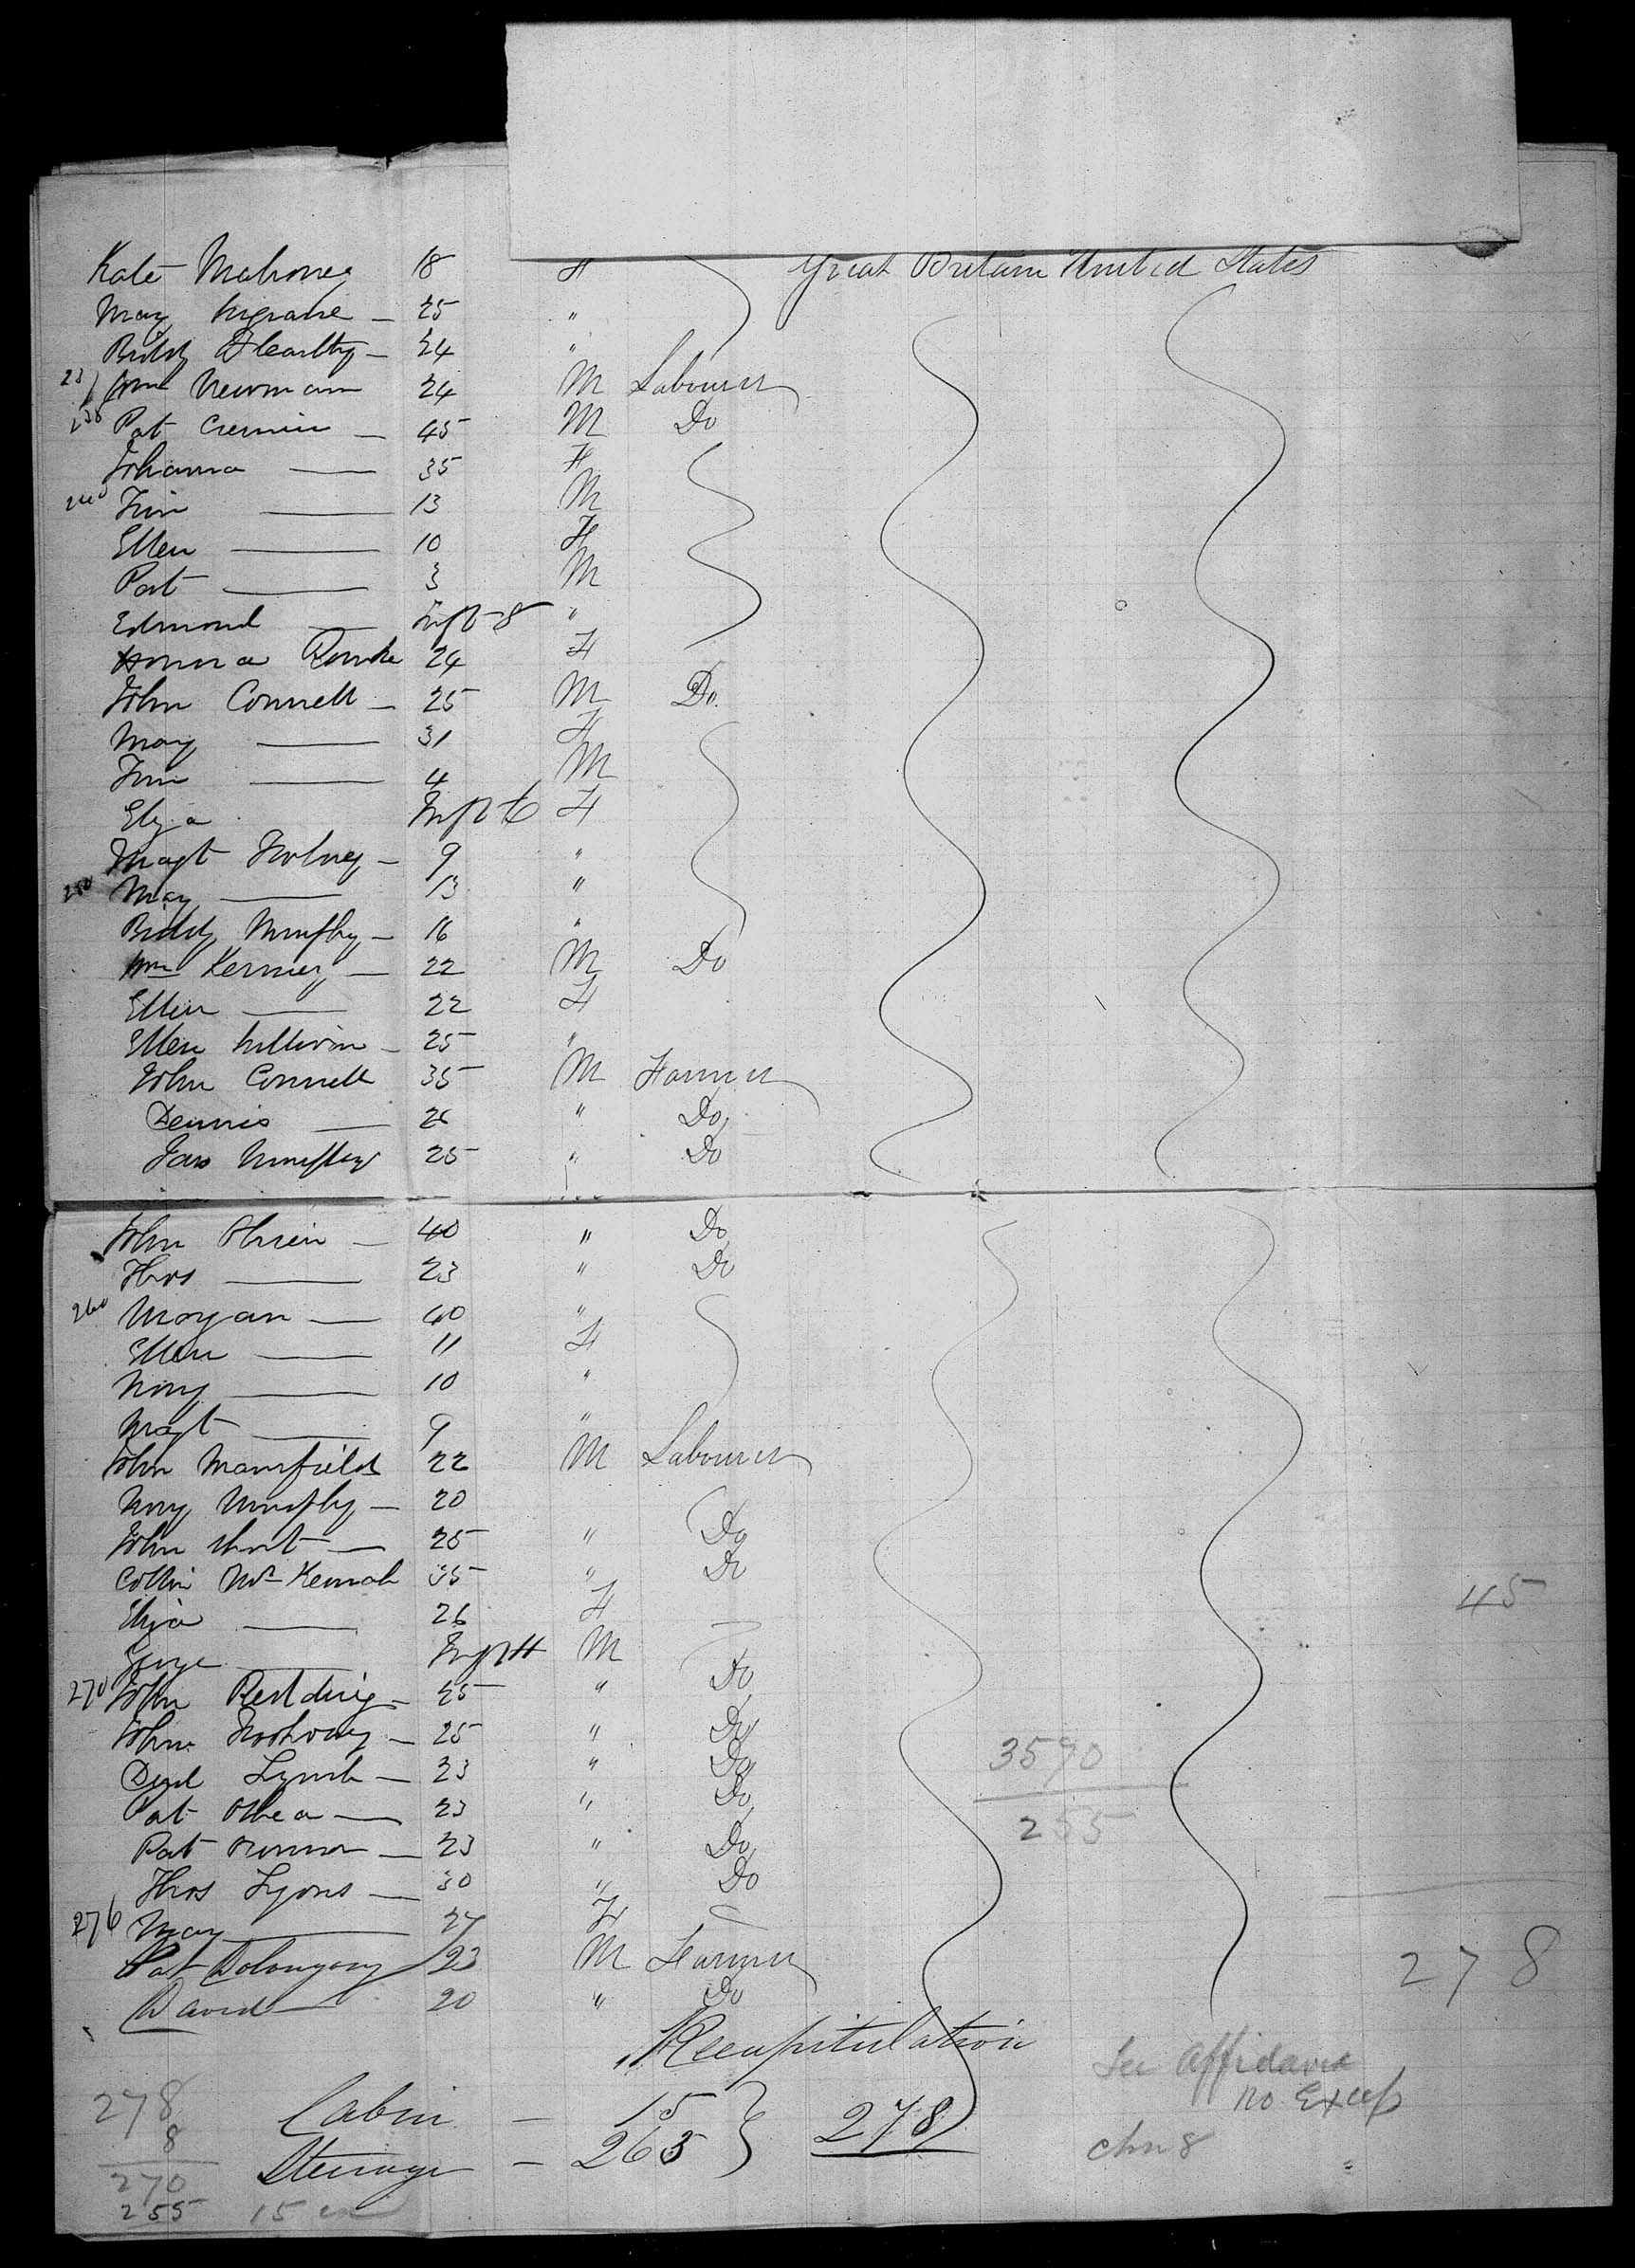 Kate Mahoney 18 F Great Britain United States
May 25 "
Biddy 24 "
Wm Newman 24 M Labourer
238 Pat Cremin — 45 M Do
Johanna — 35 F
240 Tim — 13 M
Ellen — 10 F
Pat — 3 M
Edmond — Inft 8 "
Honora Rourke 24 F
John Connell — 25 M Do
May — 31 F
Tim — 4 M
Eliza Inft 6 F
Magt — 9 "
250 May — 13 "
Biddy Murphy — 16 "
Wm — 22 M Do
Ellen — 22 F
Ellen Sullivan — 25 "
John Connell 35 M Farmer
Dennis — 26 " Do
Jas Murphy 25 " Do
John Obrien — 40 " Do
Thos — 23 " Do
260 Morgan — 40 "
Ellen — 11 F
Nony — 10 "
Magt — 9 "
John Mansfield 22 M Labourer
Murphy — 20
John — 25 " Do
35 " Do
Eliza — 26 F —
George — Inft M
270 John Redding — 25 " Do
John — 25 " Do
Lynch — 23 " Do
Pat Oshea — 23 " Do
Pat — 23 " Do
Thos Lyons — 30 " Do
276 May — 27 F —
Pat 23 M Farmer
David — 20 " Do
45
3590
255
278
Recapitulation
Cabin — 15
Steerage — 263 } 278
See Affidavit
No Excep
chn 8
278
8
270
255 15